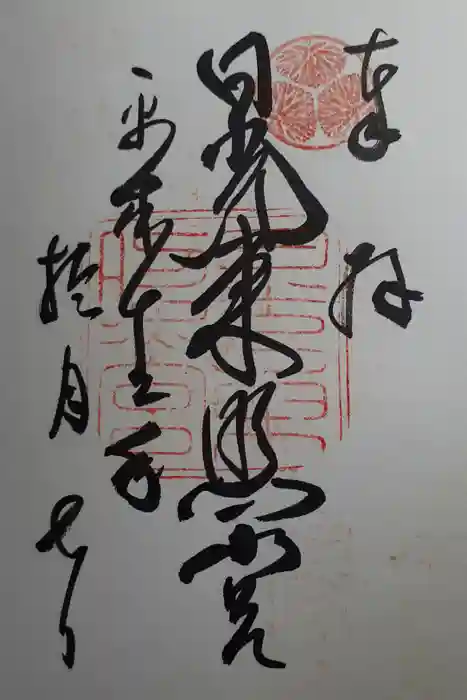 奉拝
日光東照宮
平成年
拾月七日